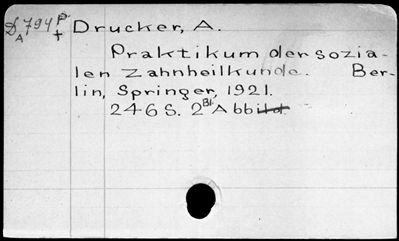 D 794 P
A +
Drucker, A.
Praktikum der sozia-
len Zahnheilkunde. Ber-
lin, Springer, 1921.
246 S. 2 Bl. Abb